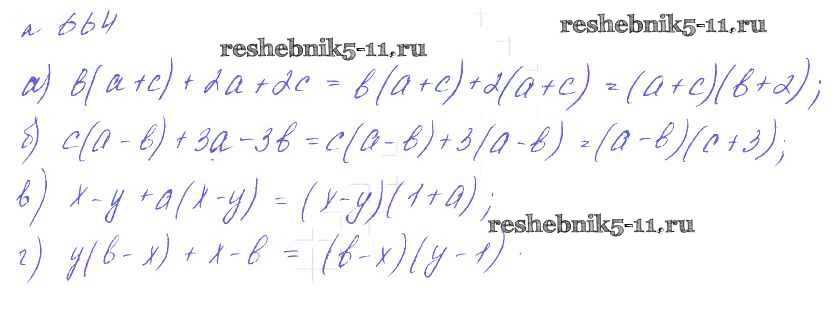 № 664
reshebnik5-11.ru
reshebnik5-11.ru
а) в(а+с) + 2а + 2с = в(а+с) + 2(а+с) = (а+с)(в+2);
б) с(а-в) + 3а - 3в = с(а-в) + 3(а-в) = (а-в)(с+3);
в) х-у + а(х-у) = (х-у)(1+а);
reshebnik5-11.ru
г) у(в-х) + х-в = (в-х)(у-1).